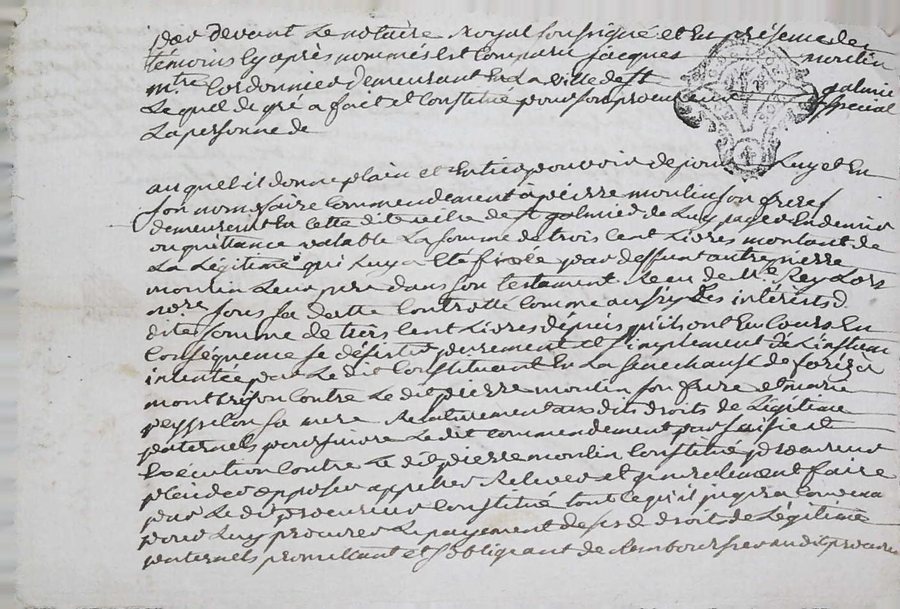 par devant Le notaire Royal soussigné et En présence des
témoins Cy après nommés est Comparu jacques moulin
m.tre Cordonnier demeurant En La ville de St galmier
Lequel de gré a fait et Constitué pour son procureur special
La personne de
auquel il donne plain et Entier pouvoir de pour Luy et En
son nom faire Commendement à pierre moulin son frere
demeurent En cette dite ville de St galmier de Luy payer En denier
ou quittance valable La somme de trois Cent Livres montant de
La Légitime qui Luy a Eté fixée par deffunt autre pierre
moulin Leur pere dans son testament Receu de M.e Rey Lors
n.re sous sa datte Controllé Comme aussy Les intérêts d
dite somme de trois Cent Livres dépuis qu'ils ont En Cours En
Conséquence se désister purement et simplement de L'instan
intentée par Le dit Constituent En La senechaussé de forez à
montbrison Contre Le dit pierre moulin son frere et marie
peyssellon sa mere Relativement aux dits droits de Légitime
paternels poursuivre Le dit Commendement par saisie et
Exécution Contre Le dit pierre moulin Constitué procureur
plaider opposer appeller Relever et generalement faire
par Le dit procureur Constitué tout ce qu'il jugera Convena
pour Luy procurer Le payement de ses d. droits de Légitime
paternels promettant et s'obligeant de Rembourser au dit procureur